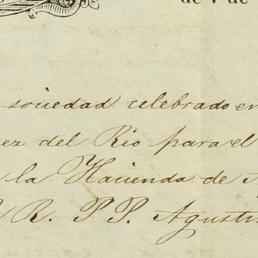 de 1 de
sociedad celebrado en
ez del Rio para el
la Hacienda de
R. P. P. Agusti